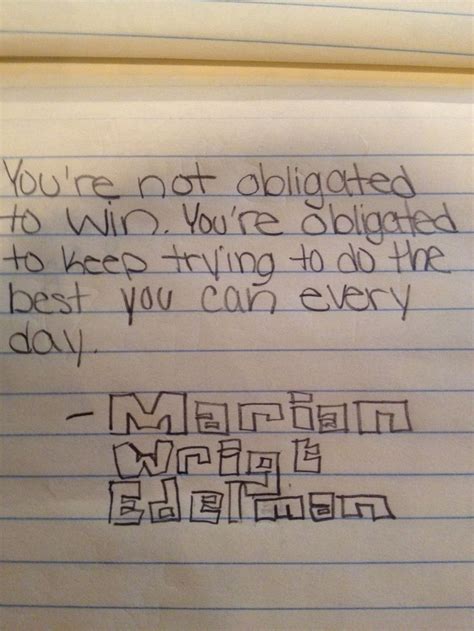 You're not obligated
to win. You're obligated
to keep trying to do the
best you can every
day.
- Marian
Wrigt
Edelman